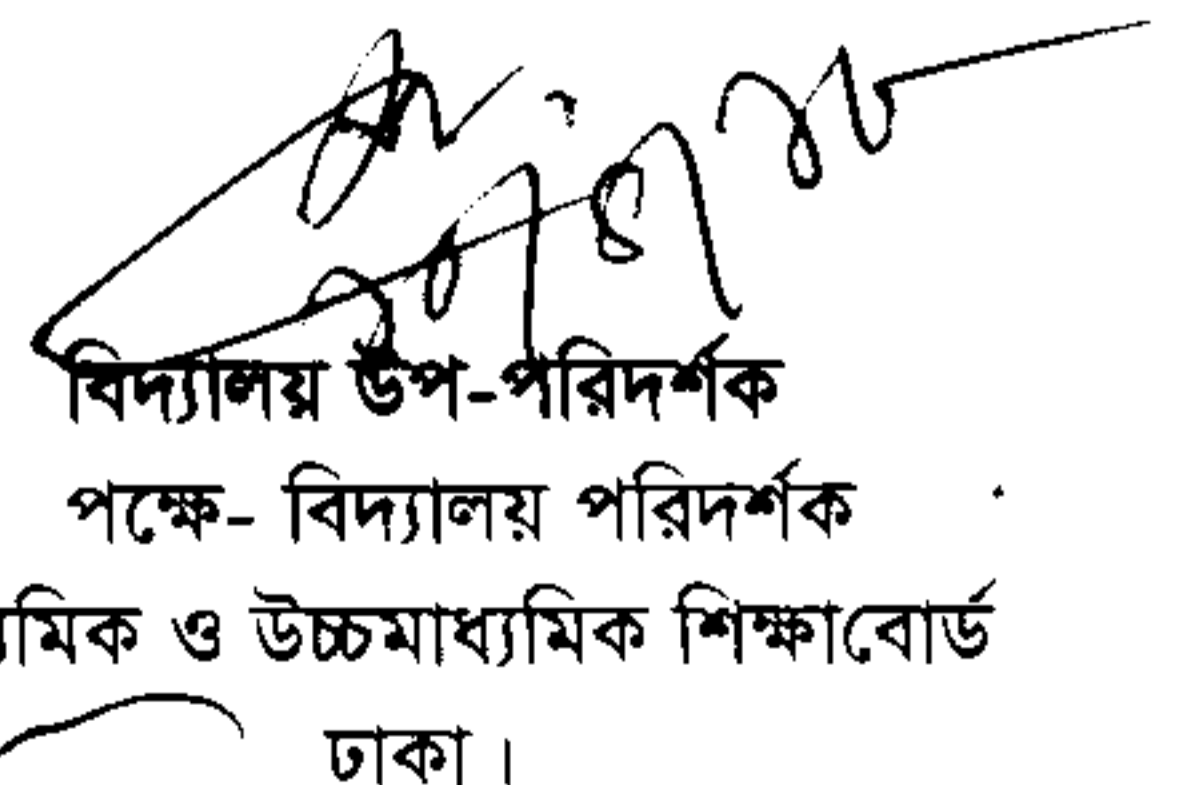 বিদ্যালয় উপ-পরিদর্শক
পক্ষে- বিদ্যালয় পরিদর্শক
্যমিক ও উচ্চমাধ্যমিক শিক্ষাবোর্ড
ঢাকা।